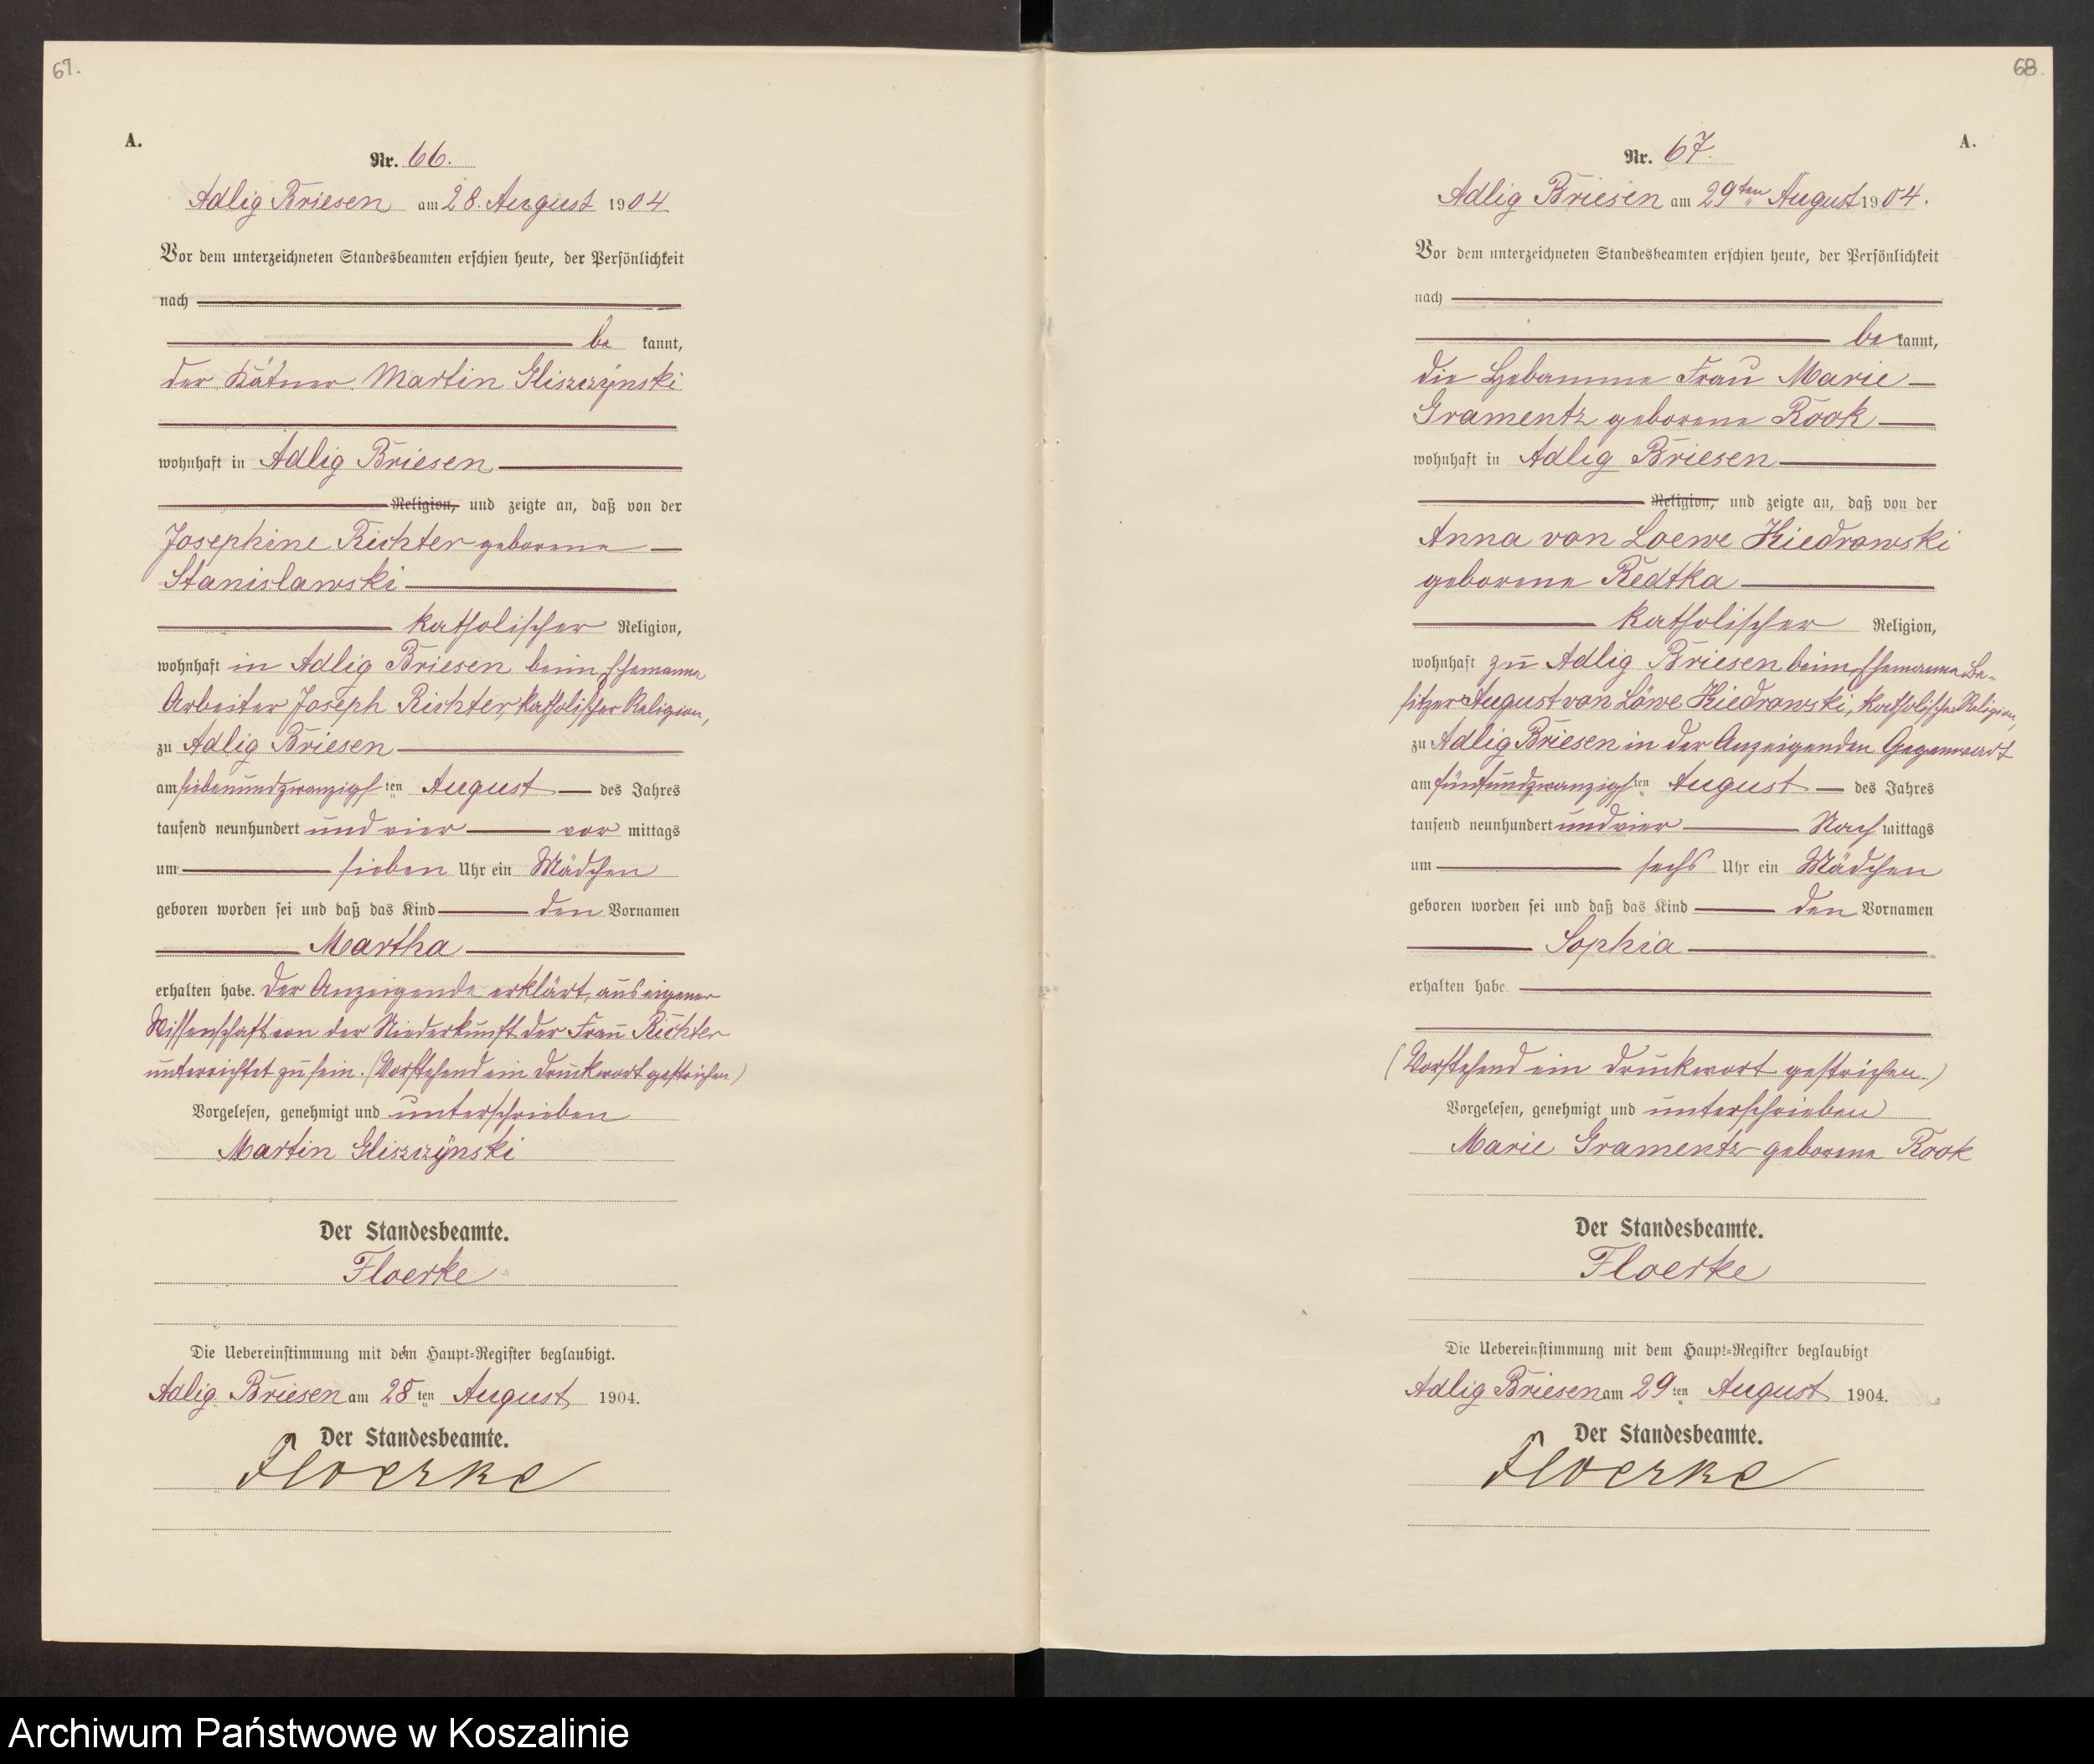 67.
A.
Nr. 66.
Adlig Briesen am 28. August 1904
Vor dem unterzeichneten Standesbeamten erschien heute, der Persönlichkeit
nach
be kannt,
der Kätner Martin Gliszczynski
wohnhaft in Adlig Briesen
Religion, und zeigte an, daß von der
Josephine Richter geborene
Stanislawski
katholischer Religion,
wohnhaft in Adlig Briesen beim Ehemanne
Arbeiter Joseph Richter, katholischer Religion,
zu Adlig Briesen
am siebenundzwanzigsten August des Jahres
tausend neunhundert und vier vor mittags
um sieben Uhr ein Mädchen
geboren worden sei und daß das Kind den Vornamen
Martha
erhalten habe. Der Anzeigende erklärt, aus eigener
Wissenschaft von der Niederkunft der Frau Richter
unterrichtet zu sein. (Vorstehend ein Druckwort gestrichen)
Vorgelesen, genehmigt und unterschrieben
Martin Gliszczynski
Der Standesbeamte.
Floerke
Die Uebereinstimmung mit dem Haupt-Register beglaubigt.
Adlig Briesen am 28ten August 1904.
Der Standesbeamte.
Floerke
68
A.
Nr. 67.
Adlig Briesen am 29ten August 1904.
Vor dem unterzeichneten Standesbeamten erschien heute, der Persönlichkeit
nach
be kannt,
die Hebamme Frau Marie
Gramentz geborene Rook
wohnhaft in Adlig Briesen
Religion, und zeigte an, daß von der
Anna von Loewe Kiedrowski
geborene Redtka
katholischer Religion,
wohnhaft zu Adlig Briesen beim Ehemanne Be-
sitzer August von Löwe Kiedrowski, katholischer Religion,
zu Adlig Briesen in der Anzeigenden Gegenwart
am fünfundzwanzigsten August des Jahres
tausend neunhundert und vier Nach mittags
um sechs Uhr ein Mädchen
geboren worden sei und daß das Kind den Vornamen
Sophia
erhalten habe.
(Vorstehend ein Druckwort gestrichen.)
Vorgelesen, genehmigt und unterschrieben
Marie Gramentz geborene Rook
Der Standesbeamte.
Floerke
Die Uebereinstimmung mit dem Haupt-Register beglaubigt
Adlig Briesen am 29ten August 1904.
Der Standesbeamte.
Floerke
Archiwum Państwowe w Koszalinie